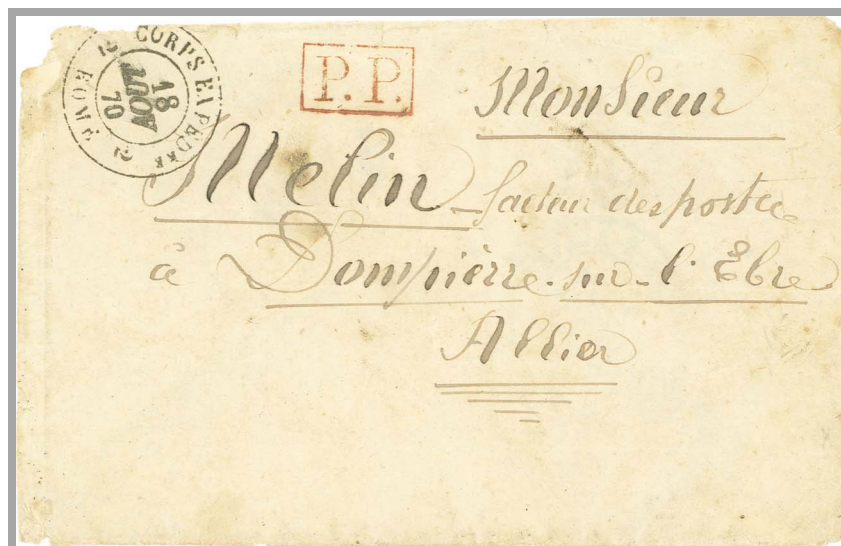 CORPS EXPEDRE ROME
18
AOUT
70
P.P.
Monsieur
Melin facteur des postes
à Dompièrre-sur-l'Ebre
Allier